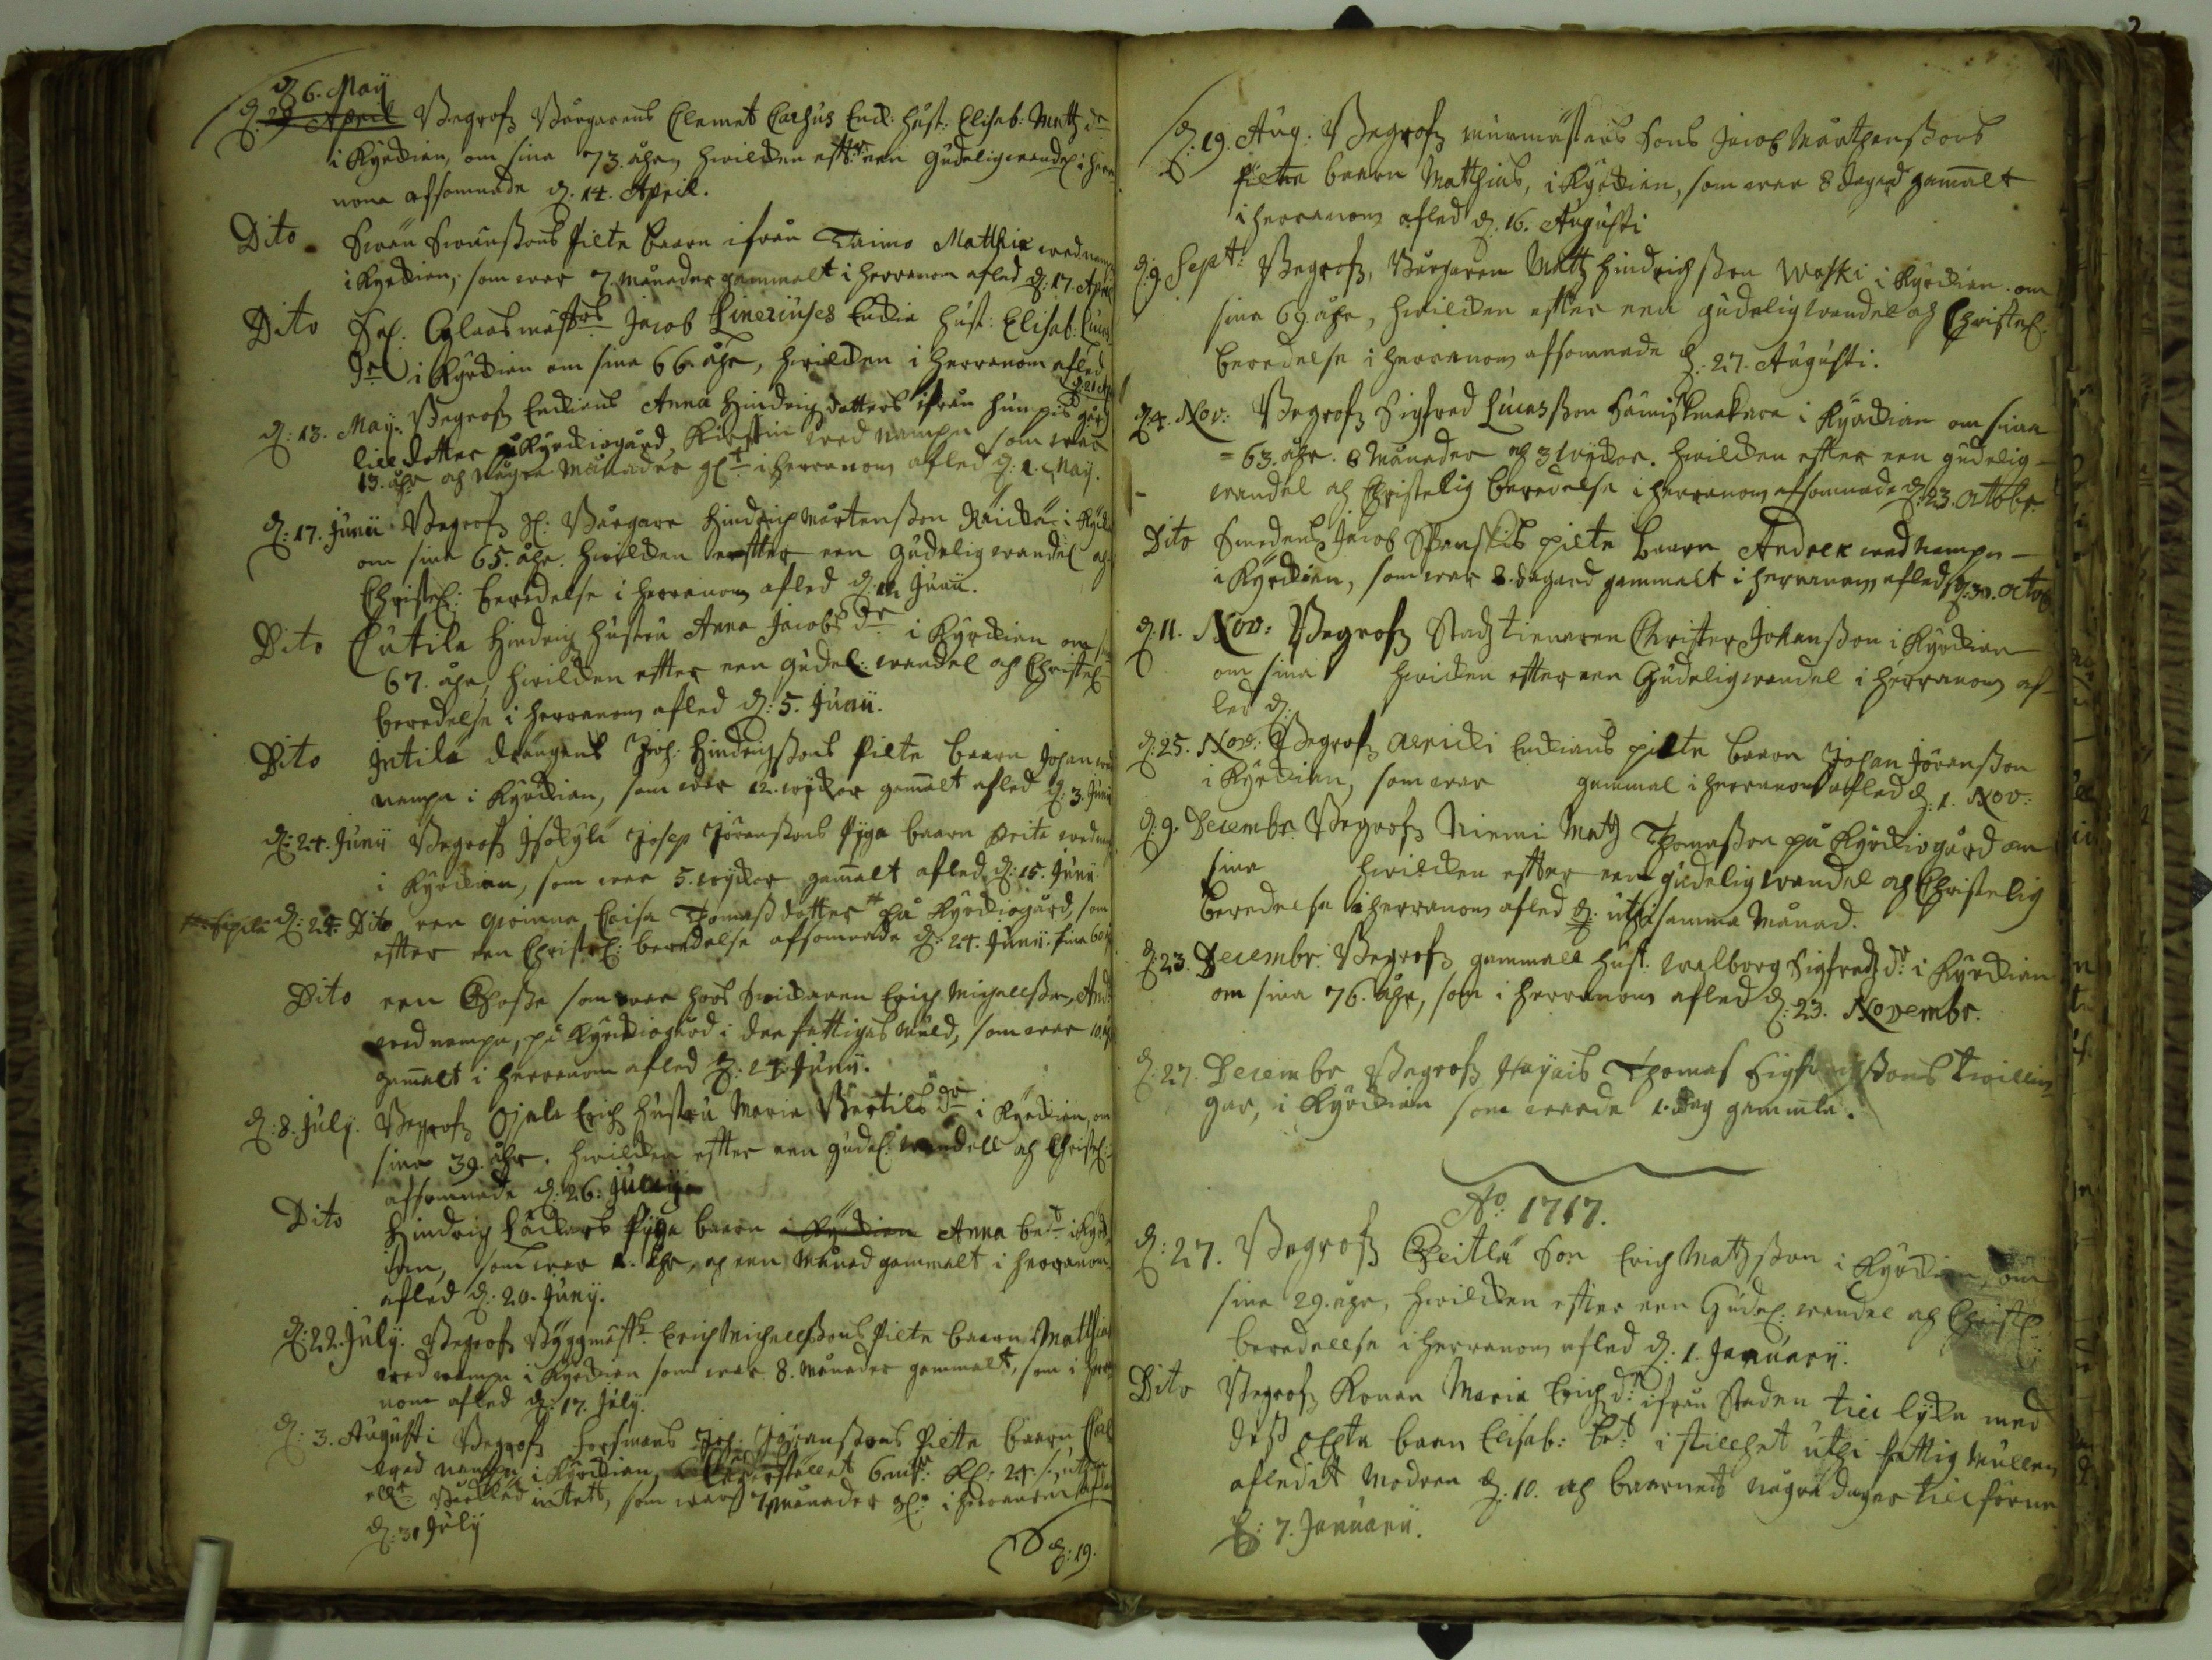 d. 6. Maÿ
d. 29 April Begrofz Bårgarens Clemet Carhus Enck: hust: Elisab: Mattz dr
i Kÿrckian, om sina 73. åhr, hwilcken efft:r een gudelig wandel i herra
nom afsomnade d. 14. April.
Dito Swän Swänssons Pilte baarn ifrån Taimo Matthiæ wed namn
i Kÿrckian, som war 7. Månader gammalt i herranom afled d: 17. April
Dito Sal. Glaasmästrs Jacob Lineriuses Enckia hust: Elisab: Lucæ
dr i Kÿrckian om sina 66. åhr, hwilcken i herranom afled
d: 21 Ap
d: 13. Maÿ. Begrofz Enckians Anna Hindrichs dotters ifrån
lill dotter på Kÿrckiogård, Kirstin wed nampn som war
13. åhr och några Månader gl:t i herranom afled d: 1. Maÿ.
d: 17. Junii Begrofz Sl. Bårgare Hindrich Mårtensson i Kÿrck
om sina 65. åhr. hwilcken effter een gudelig wandel och
Christel: beredelse i herranom afled d: 12 Junii.
Dito Eutila Hindrich hustru Anna Jacobs dr i Kÿrckian om sina
67. åhr, hwilcken effter een gudel: wandel och Christel:
beredelse i herranom afled d: 5. Junii.
Dito Jutila drängens Joh: Hindrichssons Pilte baarn Johan wed
nampn i Kÿrckian, som war 12. wÿckor gamalt afled d: 3. Junii
d: 24. Junii Begrofz Isokÿlä Josep Jöranssons Pÿga baarn Brita wed namn
i Kÿrckian, som war 5. wÿckor gamalt afled d: 15. Junii
d: 24. Dito een qwinna Caisa Thomassdotter på Kÿrckiogård, som
effter een Christel: beredelse afsomnade d: 24. Junii. sina 60
Dito een som war hoos Snickaren Erich Michellsson, And:
wed nampn, på Kÿrckiogård i den fattigas Mull, som war 10.
gamalt i herranom afled d: 14 Junii.
d: 8. Julÿ. Begrofz Ojala Erich hustru Maria Bertils dr i Kÿrckian, om
sina 39. åhr. hwilcken effter een gudel: wandell och Christel:
afsomnade d: 26. Junÿ
Dito Hindrich Pÿga baarn i Kÿrckian Anna be:t i Kÿrck
ian, som war 1. åhr, och een Månad gammalt i herranom
afled d: 20. Junÿ.
d: 22. Julÿ. Begrofz Bÿggmäst:s Erich Michellssons Pilte baarn Matthias
wed nampn i Kÿrckian som war 8. Månader gammalt, som i herra
nom afled d: 17. Julÿ.
d: 3. Augusti Begrofz Forsmans Joh: Göranssons Pilte baarn
wed nampn i Kÿrckian,
som war 7 Månader gl: i herranom afled
d: 31 Julÿ
d: 19.
d: 19. Aug: Begrofz murmästars Sons Jacob Mårthenssons
Piltn baarn Matthias, i Kÿrckian, som war 8 dagar gamalt
i herranom afled d: 16. Augusti
d: 9 Sept: Begrofz, Bårgaren Mattz Hindrichsson Waski i Kÿrckian. om
sina 69. åhr, hwilcken effter een gudelig wandel och Christel:
beredelse i herranom afsomnade d: 27. Augusti.
d: 4. Nov: Begrofz Sigfred Lucasson Hanskmakare i Kÿrckian om sina
63. åhr. 8 Månader och 3 wÿckor. hwilcken effter een gudelig
wandel och Christelig beredelse i herranom afsomnade d: 23. Octobr
Dito Smedens Jacob pilte baarn Andreæ wed nampn
i Kÿrckian, som war 8. dagar gammalt i herranom afled d: 30. Octob
d: 11. Nov: Begrofz Stadztienaren Christer Johansson i Kÿrckian
om sina hwilcken effter een Gudelig wandel i herranom af-
led d:
d: 25. Nov: Begrofz Enckians pilte baarn Johan Jöransson
i Kÿrckian, som war gammal i herranom afled d: 1. Nov:
d: 9. Decembr. Begrofz Niemi Matz Thomasson på Kÿrckiogård om
sina hwilcken effter een gudelig wandel och Christelig
beredelse i herranom afled d. uthi samma Månad.
d: 23. Decembr. Begrofz gammall hust. Walborg Sigfredz dr i Kÿrckian
om sina 76. åhr, som i herranom afled d: 23. Novembr.
d: 27. Decembr Begrofz Thomas Sigfredssons twillin
gar, i Kÿrckian som warde 1. dag gammla.
Ao 1717.
d: 27. Begrofz Peitlä Son Erich Matzsson i Kÿrckian, om
sina 29. åhr, hwilcken effter een Gudel: wandel och Christel:
beredellse i herranom afled d: 1. Januarÿ.
Dito Begrofz Konan Maria Erichz dr ifrån Staden till lÿka med
dess baarn Elisab: be:t i stillhet uthi fattig mullen
afledit Modren d: 10. och baarnet några dagar tillförne
d: 7. Januarii.